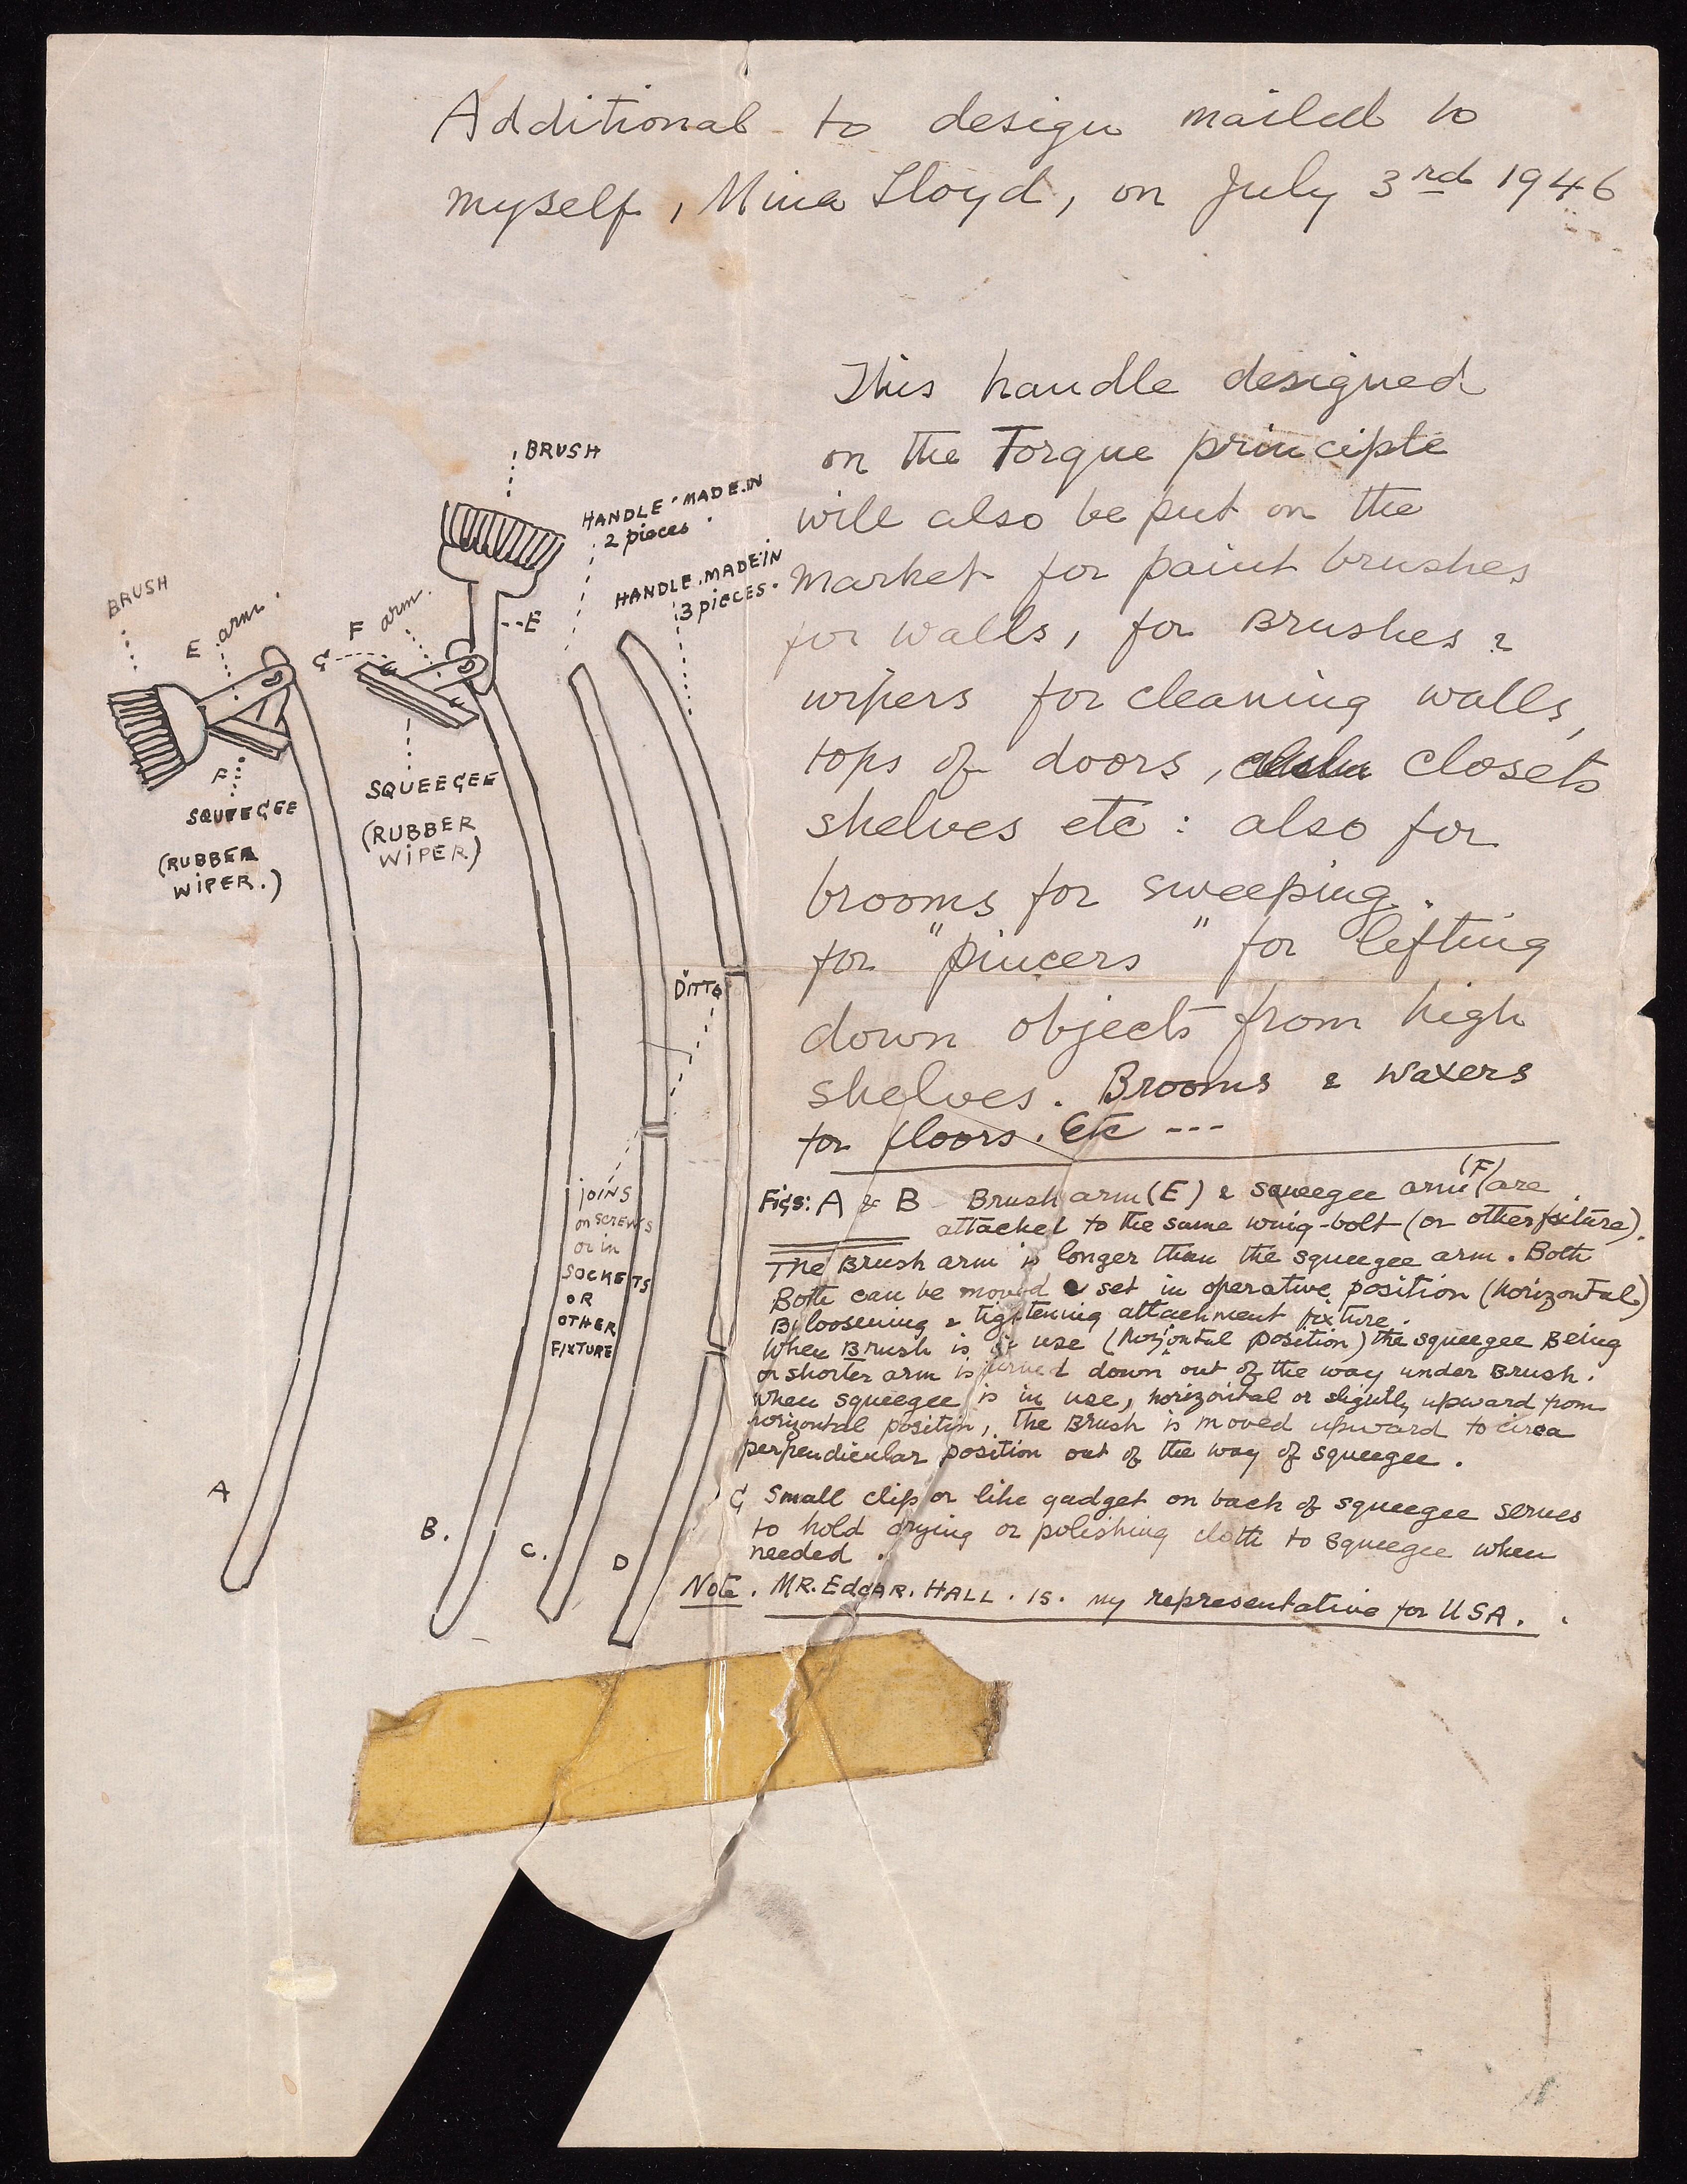 Additional to design mailed to
myself, Mina Lloyd, on July 3rd 1946
This handle designed
on the Torque principle
will also be put on the
Market for paint brushes
for walls, for Brushes &
wipers for cleaning walls,
tops of doors, closets
shelves etc: also for
brooms for sweeping.
for "pincers" for lefting
down objects from high
shelves. Brooms & waxers
for floors. Etc ---
BRUSH
HANDLE MADE IN
2 pieces
HANDLE MADE IN
3 pieces.
BRUSH
E arm.
F arm.
G
E
F
SQUEEGEE
(RUBBER
WIPER.)
SQUEEGEE
(RUBBER
WIPER)
DITTO
JOINS
on SCREWS
or in
SOCKETS
OR
OTHER
FIXTURE
A
B.
C.
D
Figs: A & B Brush arm (E) & squeegee arm (F) are
attached to the same wing-bolt (or other fixture).
The Brush arm is longer than the squeegee arm. Both
Both can be moved & set in operative position (horizontal)
By loosening & tightening attachment fixture.
When Brush is in use (horizontal position) the squeegee Being
on shorter arm is turned down out of the way under Brush.
When squeegee is in use, horizontal or slightly upward from
horizontal position, the Brush is moved upward to circa
perpendicular position out of the way of squeegee.
G Small clip or like gadget on back of squeegee serves
to hold drying or polishing cloth to squeegee when
needed.
Note. MR. EDGAR. HALL. IS. my representative for USA.